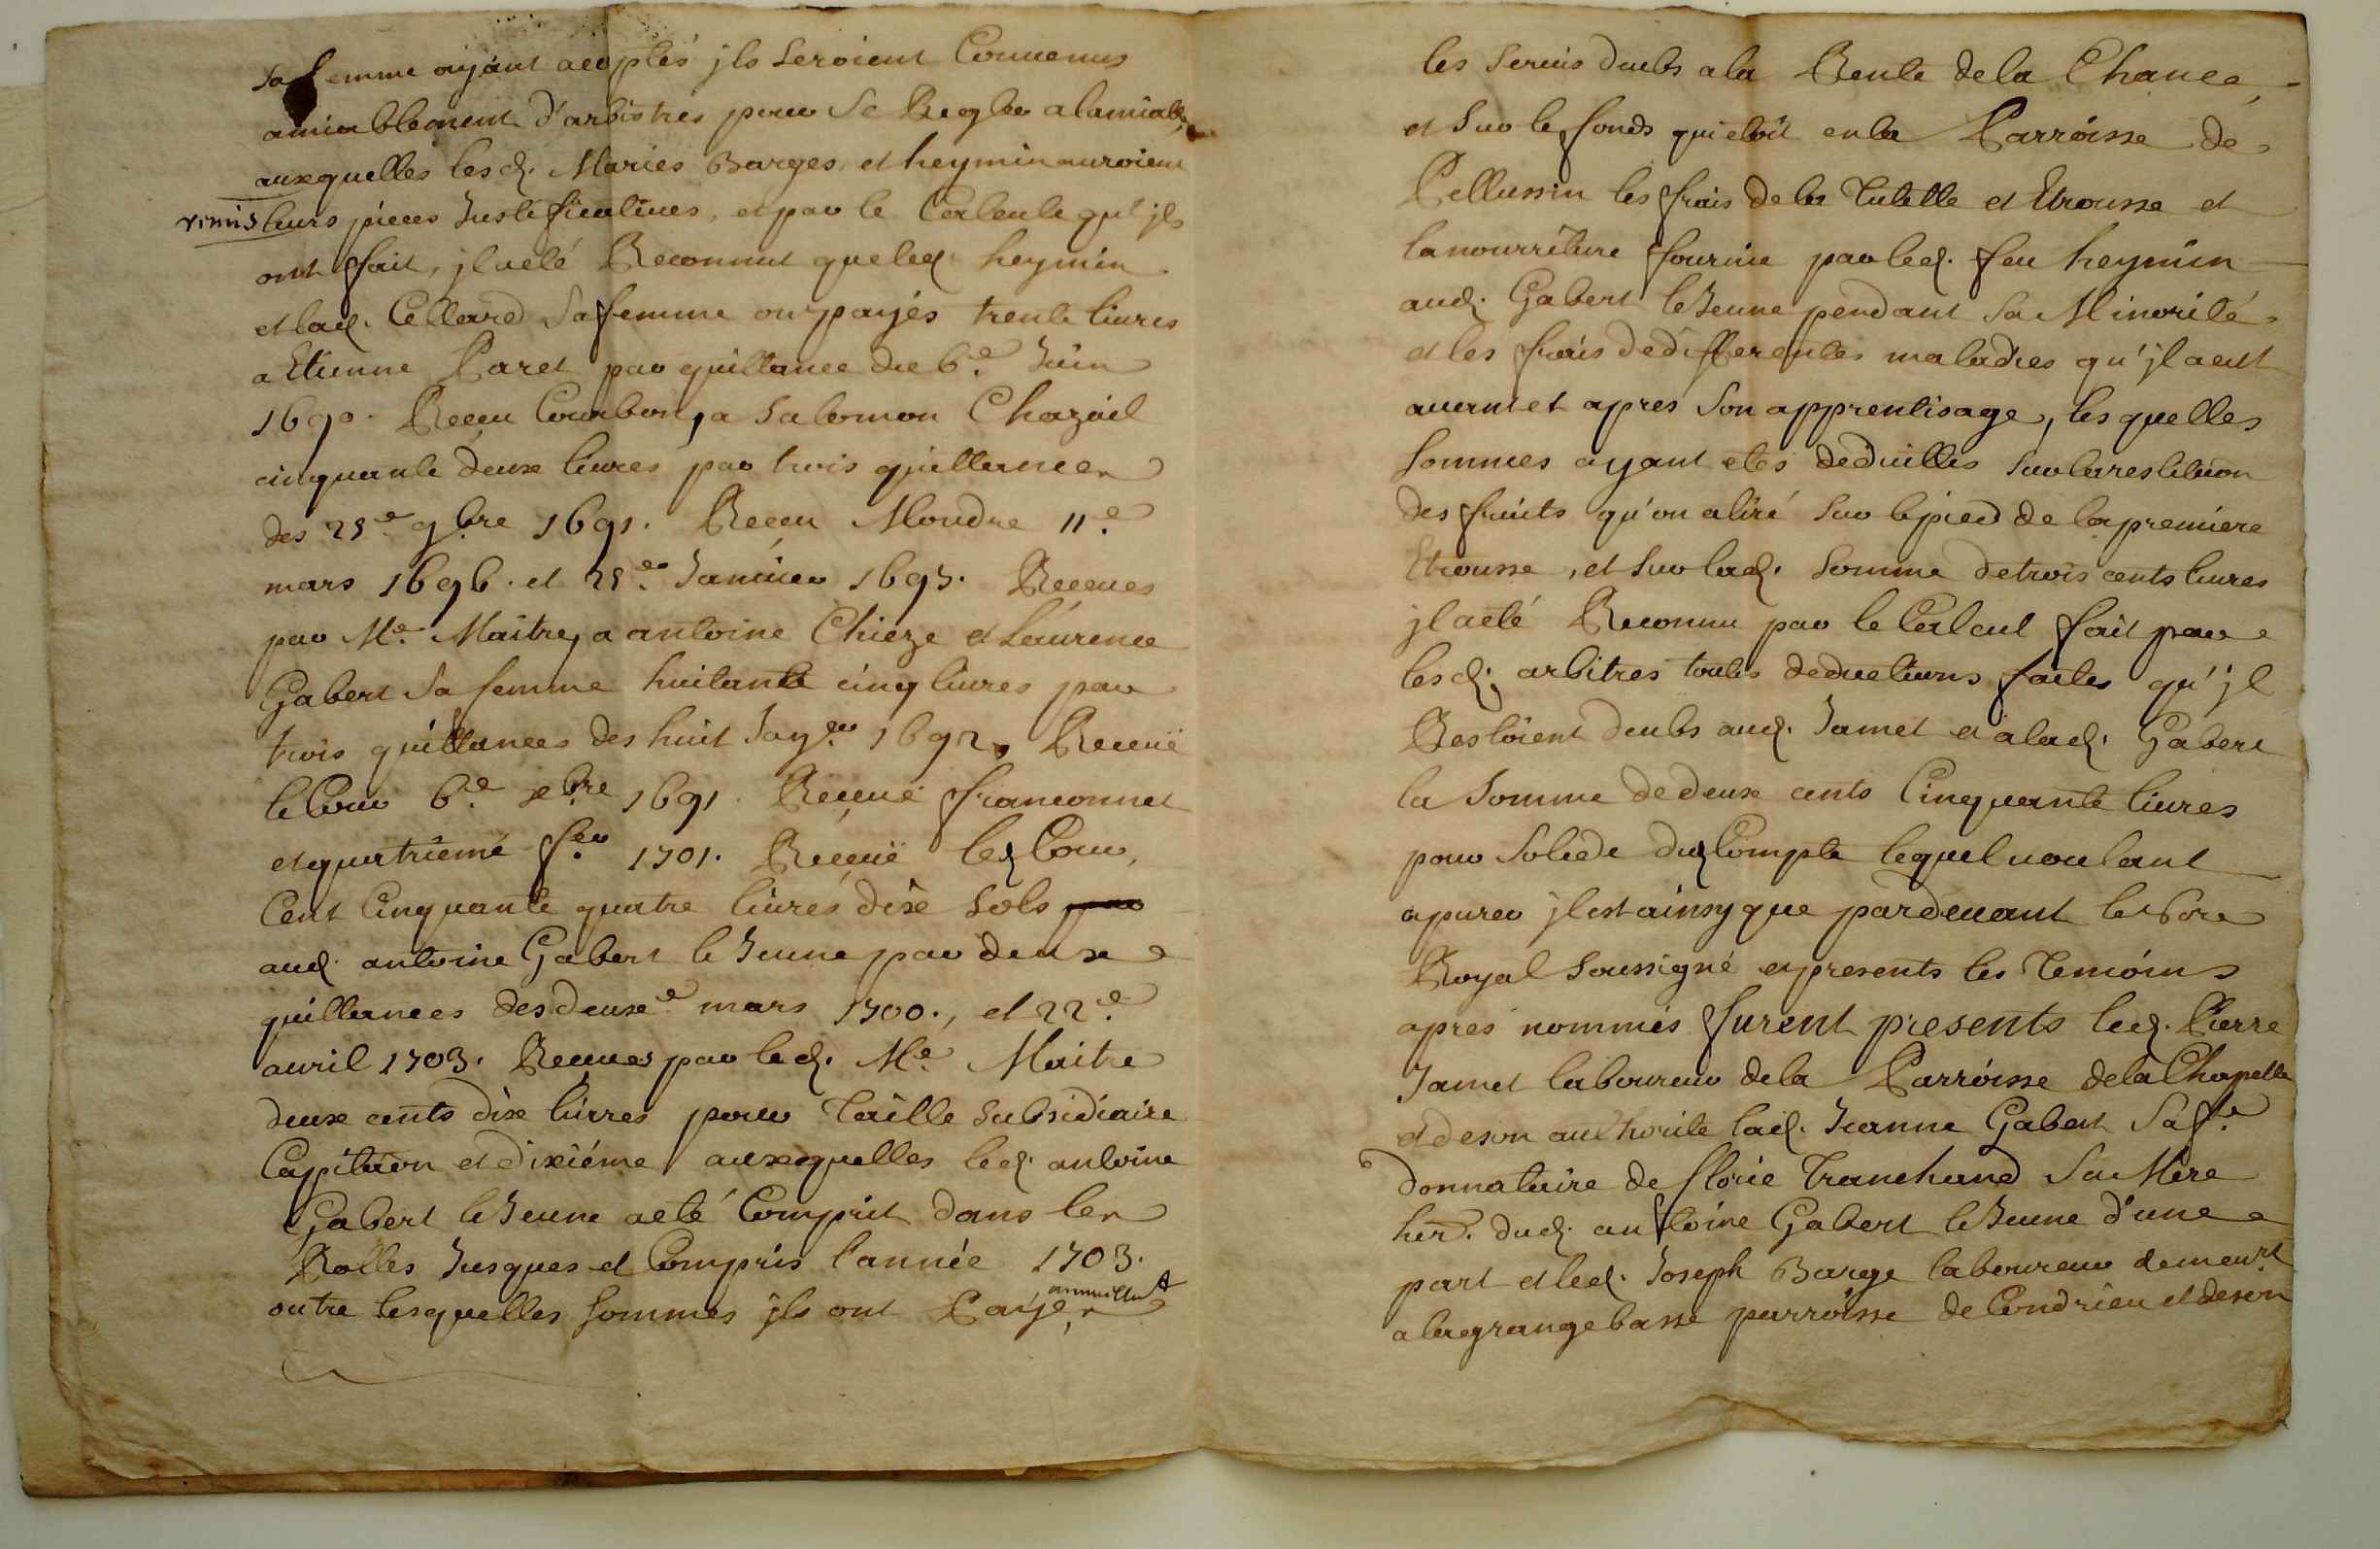 sa femme ayant acceptés jls seroient Convenus
amiablement d'arbistres pour se Regler alamiable
auxquelles lesd. Maries Barges et heymin auroient
remis leurs pieces Justificatives, et par le Calcule qu'jls
ont fait, jl aeté Reconnut queled. heymin
et lad. Cellard Sa femme ont payés trente livres
a Etienne Paret par quittance du 6.e Juin
1690. Receu Courbon, a Salomon Chazail
cinquante deux livres par trois quittances
des 25e 9.bre 1691. Receu Moudre 11.e
mars 1696. et 25.e Janvier 1695. Receues
par M.e Maitre, a antoine Chieze et Laurence
Gabert Sa femme huitante cinq livres par
trois quittances des huit Jan.er 1692, Receüe
le Cour 6.e xbre 1691. Receüe franconnet
et quatriéme f.er 1701. Receüe led. Cour,
Cent Cinquante quatre livres dix sols
aud. antoine Gabert le Jeune par deux
quittances des deuxe mars 1700., et 22.e
avril 1703. Receues par led. M.e Maitre
deux cents dix livres pour Taille subsidiaire
Capitation et dixiéme auxquelles led. antoine
Gabert le Jeune aeté Comprit dans les
Rolles Jusques et Compris l'année 1703.
outre lesquelles sommes jls ont Payer annuellmt
les servis deubs ala Rente dela Chance
et sur le fonds qui etoit enla Parroisse de
Pellussin les frais dela Tutelle et Etrousse et
la nourriture fournie par led. feu heymin
aud. Gabert le Jeune pendant sa Minorité
et les frais dedifferentes maladies qu'jl aeut
avant et apres son apprentisage, lesquelles
sommes ayant etés deduittes sur larestitution
des fruits qu'on atiré sur lepied de la premiere
Etrousse, et sur lad. somme detrois cents livres
jl aeté Reconnu par le Calcul fait par
lesd. arbitres toutes deductions faites qu'jl
Restoient deubs aud. Jamet et alad. Gabert
la somme dedeux cents Cinquante livres
pour solede dud. Compte lequel voulant
apurer jl est ainsy que pardevant le
Royal soussigné et presents les Temoins
apres nommés furent presents led. Pierre
Jamet laboureur dela Parroisse dela Chapelle
et deson authorité lad. Jeanne Gabert Saf.e
donnataire de florie Tranchand Sa Mere
her. dud. antoine Gabert le Jeune d'une
part et led. Joseph Barge laboureur demeur.t
alagrangebasse parroisse de Condrieu et deson